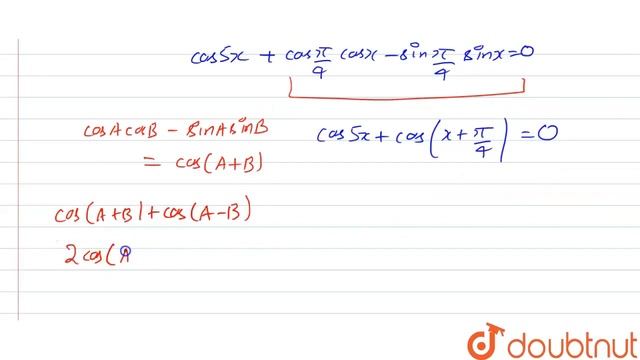 cos5x + cos π/4 cosx - sin π/4 sinx = 0
cosAcosB - sinAsinB
= cos(A+B)
cos5x + cos(x + π/4) = 0
cos(A+B) + cos(A-B)
2cos(A
doubtnut